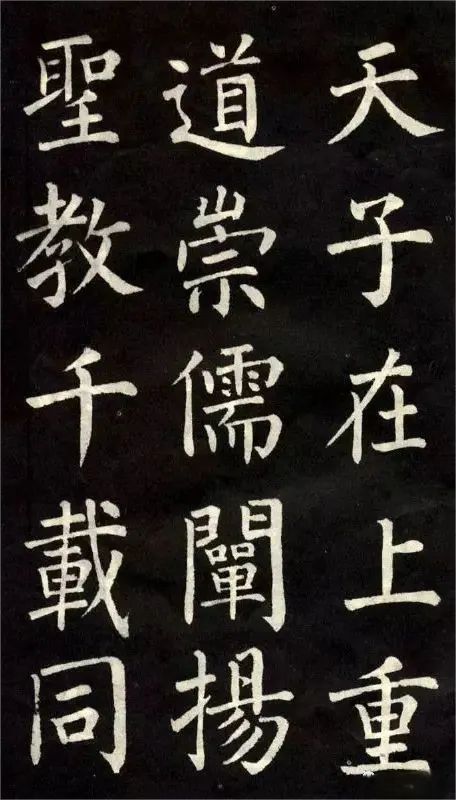 天子在上重
道崇儒闡揚
聖教千載同